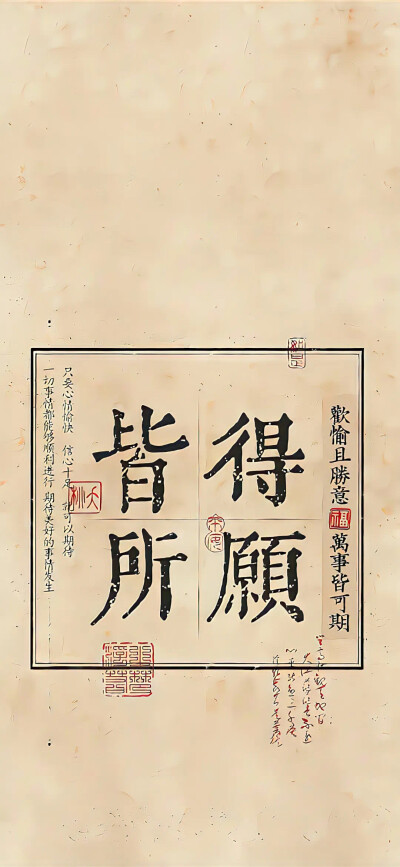 歡愉且勝意 福 萬事皆可期
得願
皆所
只要心情愉快 信心十足 就可以期待
一切事情都能够順利進行 期待美好的事情发生